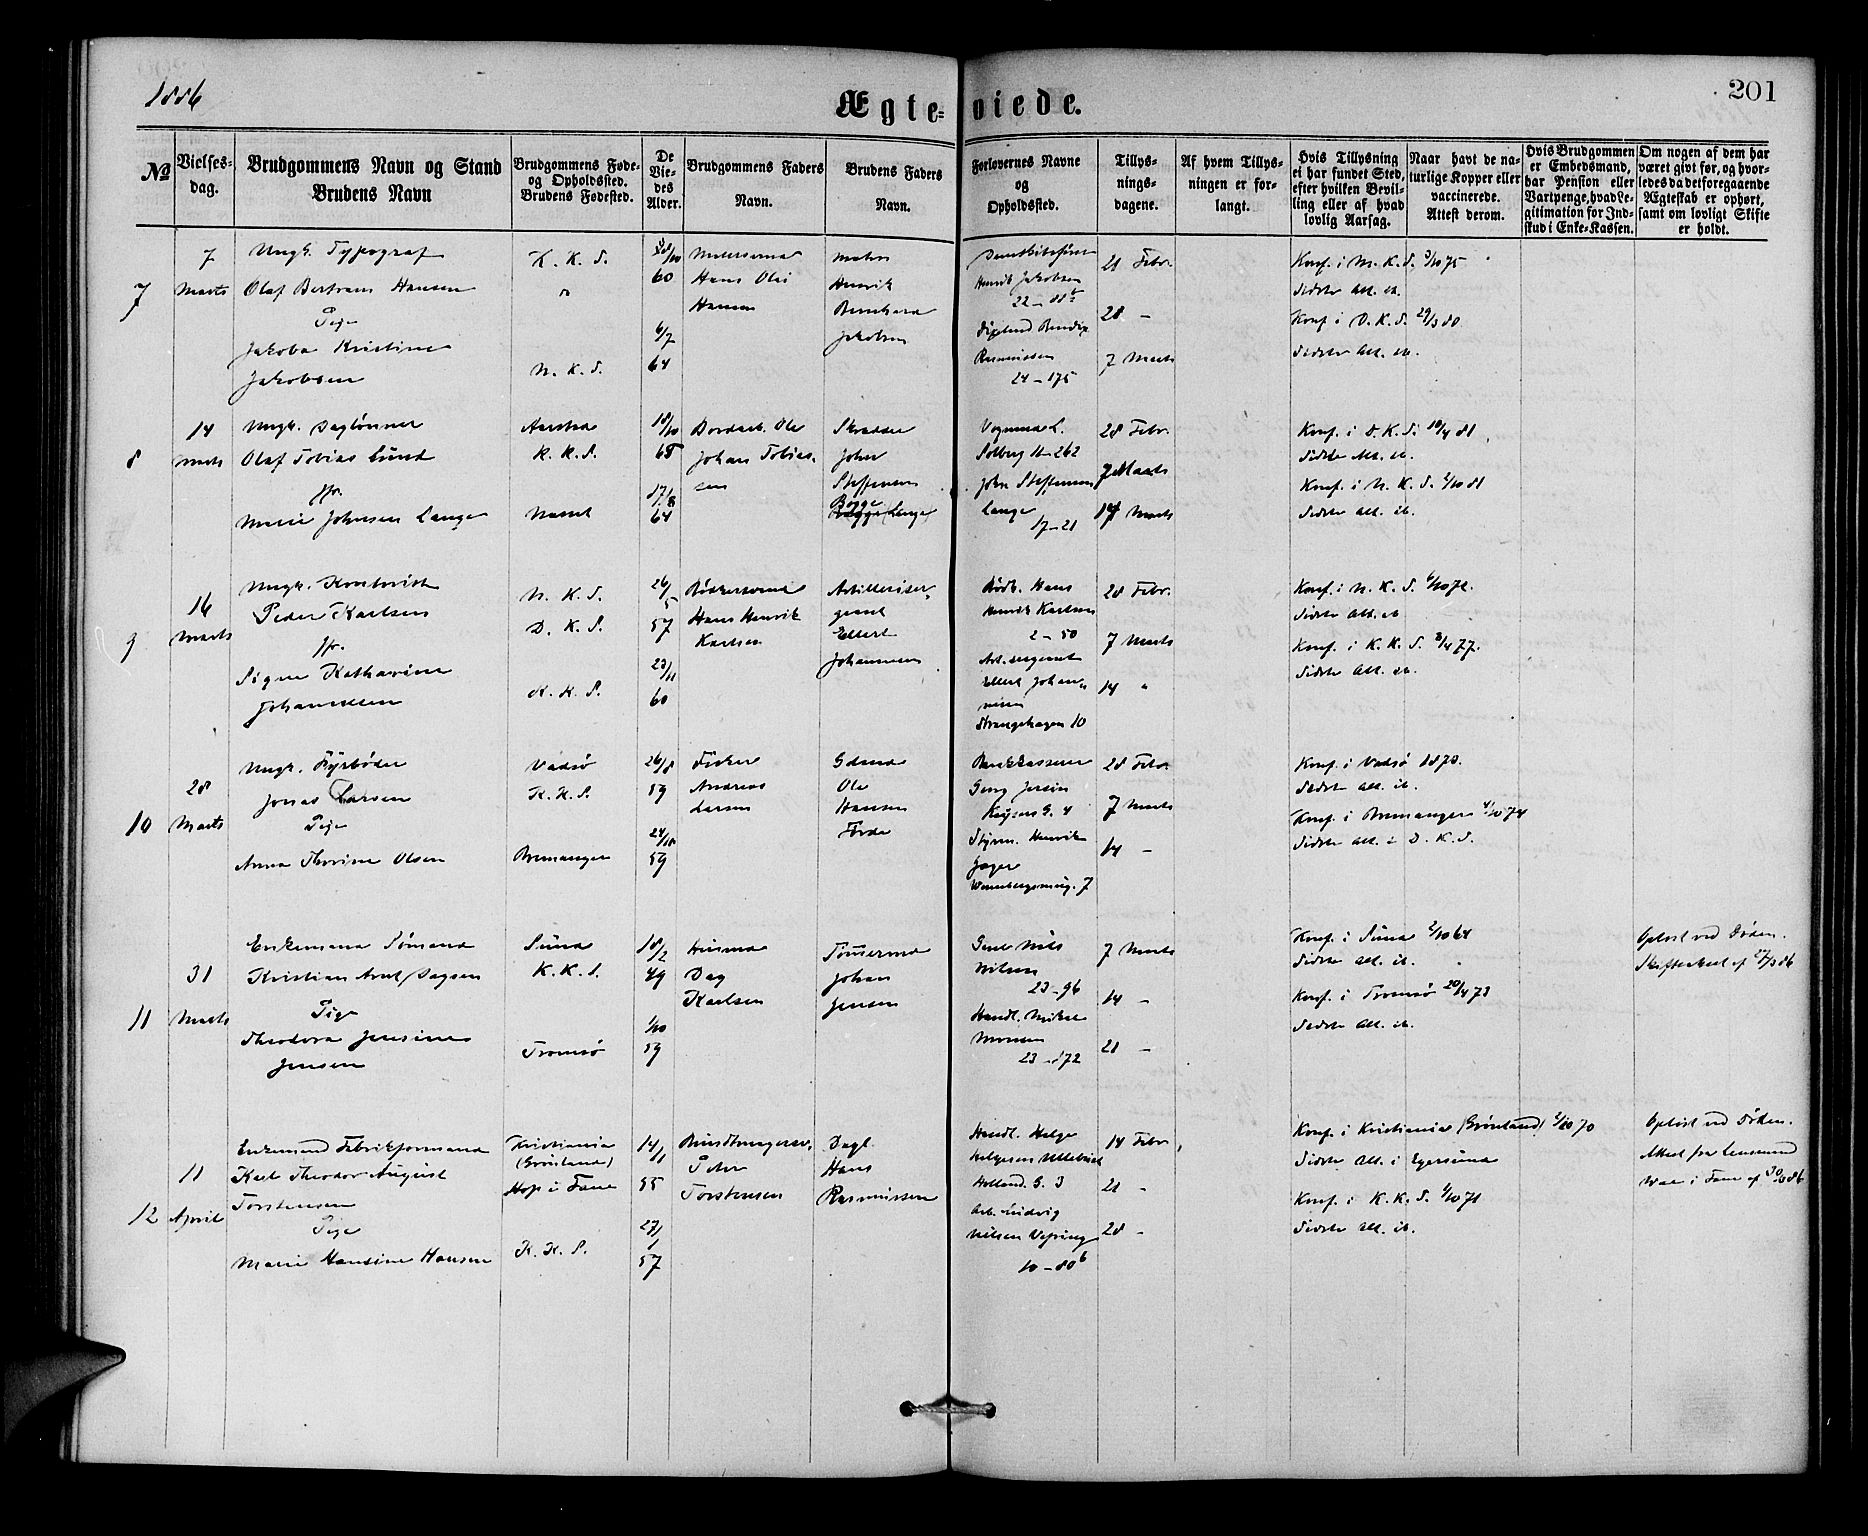 1886
Ægte-viede.
201
№
Vielses-
dag.
Brudgommens Navn og Stand
Brudens Navn
Brudgommens Føde-
og Opholdssted.
Brudens Fødested.
De
Vie-
des
Alder.
Brudgommens Faders
Navn.
Brudens Faders
Navn.
Forlovernes Navne
og
Opholdssted.
Tillys-
nings-
dagene.
Af hvem Tillys-
ningen er for-
langt.
Hvis Tillysning
ei har fundet Sted,
efter hvilken Bevil-
ling eller af hvad
lovlig Aarsag.
Naar havt de na-
turlige Kopper eller
vaccinerede.
Attest derom.
Hvis Brudgommen
er Embedsmand,
har Pension eller
Vartpenge, hvad Le-
gitimation for Ind-
skud i Enke-Kassen.
Om nogen af dem har
været givt før, og hvor-
ledes da det foregaaende
Ægteskab er ophørt,
samt om lovligt Skifte
er holdt.
7
7
Marts
Ungk. Typograf
Olaf Bertram Hansen
Pige
Jakoba Kristine
Jakobsen
K. K. S.
"
N. K. S.
60
6/7
64
Hans Olai
Hansen
Henrik
Bernhard
Jakobsen
Henrik Jakobsen
Rasmussen
24 - 175
21 Febr.
28 -
7 Marts
Konf. i N. K. S. 3/10 75
Sidste Att. ib.
Konf. i D. K. S. 29/3 80
Sidste Att. ib.
8
14
Marts
Ungk. Daglønner
Olaf Tobias Lund
Jfr.
Marie Johnsen Lange
Aarstad
K. K. S.
18/10
65
17/8
64
Ole
Johan Tobias-
sen
Skrædder
John
Steffensen
Bøgge
Solberg 11-262
John Steffensen
Lange
17-21
28 Febr.
7 Marts
14 Marts
Konf. i D. K. S. 10/4 81
Sidste Att. ib.
Konf. i N. K. S. 2/10 81
Sidste Att. ib.
9
16
Marts
Ungk.
Peder Karlsen
Jfr.
Signe Katharine
Johannessen
N. K. S.
D. K. S.
K. K. S.
26/5
57
23/11
60
Hans Henrik
Karlsen
Artilleriser-
geant
Ellert
Johannesen
Bødk. Hans
Henrik Karlsen
2-50
Art. sergeant
Ellert Johan-
nesen
Strangehagen 10
28 Febr.
7 Marts
14 "
Konf. i N. K. S. 6/10 72.
Sidste Att. ib
Konf. i K. K. S. 8/4 77.
Sidste Att. ib.
10
28
Marts
Ungk. Fyrbøder
Jonas Larsen
Pige
Anna Thorine Olsen
Vadsø
K. K. S.
Bremanger
26/8
59
24/10
59
Fisker
Andreas
Larsen
Gdmd
Ole
Hansen
Førde
Georg Jersin
Keysers G. 4
Styrm. Henrik
Jæger
28 Febr.
7 Marts
14 -
Konf. i Vadsø 1873.
Sidste Att. ib.
Konf. i Bremanger 4/10 74
Sidste Att. i D. K. S.
11
31
Marts
Enkemand Sømand
Kristian Arnt Dagsen
Pige
Theodora Jensine
Jensen
Sund
K. K. S.
Tromsø
18/2
49
1/10
59
Husmd
Dag
Karlsen
Tømermd
Johan
Jensen
Nils
Nilsen
23-96
Handl. Mikal
Monsen
23-172
7 Marts
14 -
21 -
Konf. i Sund 2/10 64
Sidste Att. ib.
Konf. i Tromsø 20/4 73
Sidste Att. ib.
Opløst ved Døden.
Skifteattest af 27/3 86
12
11
April
Enkemand Fabrikformand
Karl Theodor August
Torstensen
Pige
Marie Hansine Hansen
Kristiania
(Grønland)
Hop i Fane
K. K. S.
14/1
55
27/1
57
Peter
Torstensen
Dagl.
Hans
Rasmussen
Handl. Helge
Helgesen
Holland. G. 3
Arb. Ludvig
Nilsen
10-80b
14 Febr.
21 -
28 -
Konf. i Kristiania (Grønland) 2/10 70
Sidste Att. i Egersund
Konf. i K. K. S. 1/10 71
Sidste Att. ib.
Opløst ved Døden.
Attest fra Lensmand